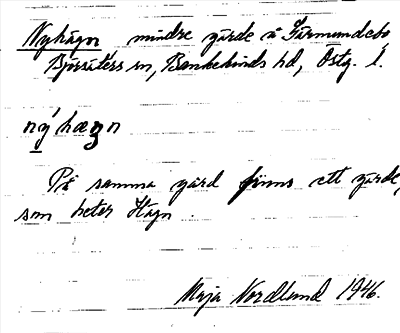 Nyhägn mindre gärde å Färmundebo
Björsäters sn, Bankekinds hd, Östg. l.
nýhægn
På samma gård finns ett gärde,
som heter Hägn.
Maja Nordlund 1946.